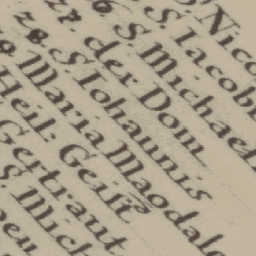 S. Nico
S. Iacob
zr. der S. Michael
ze. der Dom
S. Iohannis
Maria Magdale
Heil: Geist
Gertraut
S. Mich